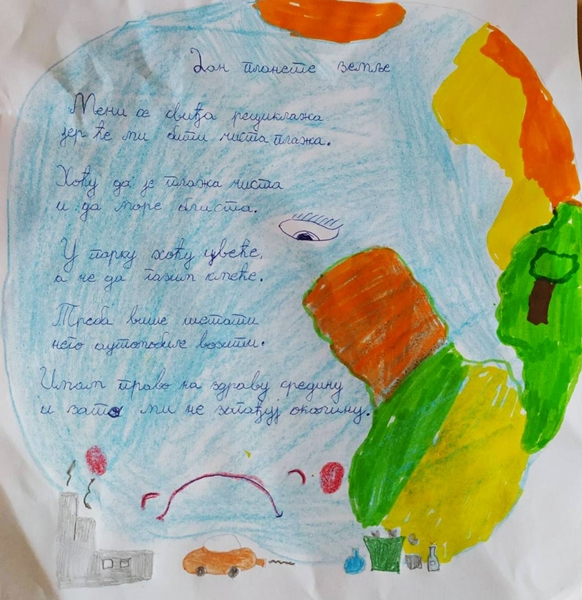 Дан планете земље
Мени се свиђа рециклажа
јер ће ми бити чиста плажа.
Хоћу да је плажа чиста
и да море блиста.
У парку хоћу цвеће,
а не да газим смеће.
Треба више шетати
него аутомобиле возити.
Имам право на здраву средину
и зато ми не загађуј околину.